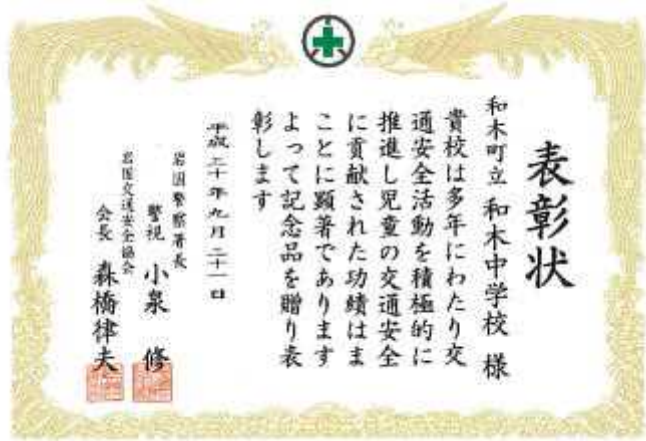 表彰状
和木町立 和木中学校 様
貴校は多年にわたり交
通安全活動を積極的に
推進し児童の交通安全
に貢献された功績はま
ことに顕著であります
よって記念品を贈り表
彰します
平成二十年九月二十一日
岩国警察署長
警視 小泉 修
岩国交通安全協会
会長 森橋律夫